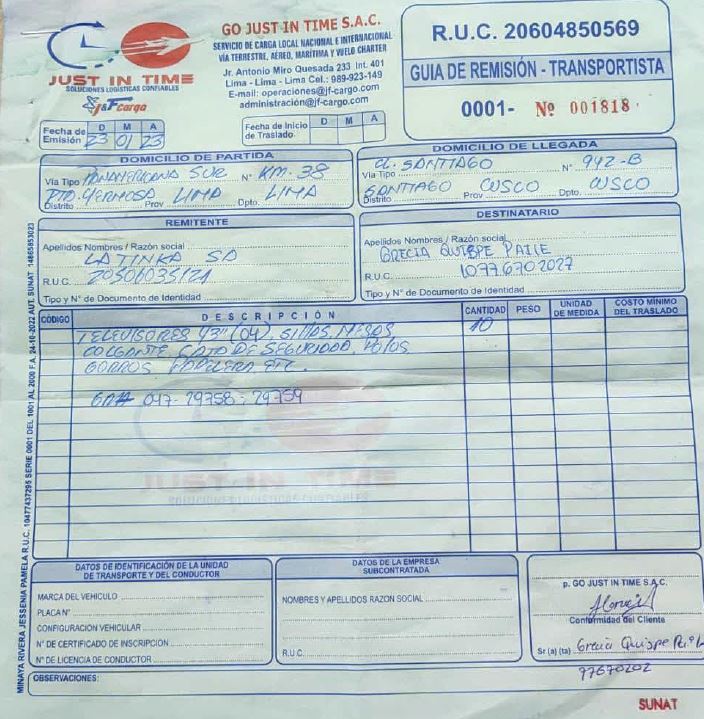 JUST IN TIME
SOLUCIONES LOGÍSTICAS CONFIABLES
J&F cargo
GO JUST IN TIME S.A.C.
SERVICIO DE CARGA LOCAL NACIONAL E INTERNACIONAL
VÍA TERRESTRE, AÉREO, MARÍTIMA Y VUELO CHARTER
Jr. Antonio Miro Quesada 233 Int. 401
Lima - Lima - Lima Cel.: 989-923-149
E-mail: operaciones@jf-cargo.com
administración@jf-cargo.com
R.U.C. 20604850569
GUIA DE REMISIÓN - TRANSPORTISTA
0001- Nº 001818
Fecha de Emisión D M A
23 01 23
Fecha de Inicio de Traslado. D M A
DOMICILIO DE PARTIDA
Vía Tipo PANAMERICANA SUR N° KM. 38
PTO. HERMOSA LIMA LIMA
Distrito Prov. Dpto.
DOMICILIO DE LLEGADA
CL. SANTIAGO N° 942-B
Vía Tipo
SANTIAGO CUSCO CUSCO
Distrito Prov Dpto.
REMITENTE
Apellidos Nombres / Razón social
LA TINKA SA
R.U.C. 20506035121
Tipo y N° de Documento de Identidad
DESTINATARIO
Apellidos Nombres / Razón social
GRECIA QUISPE
R.U.C. 10776702027
Tipo y N° de Documento de Identidad
CÓDIGO DESCRIPCIÓN CANTIDAD PESO UNIDAD DE MEDIDA COSTO MÍNIMO DEL TRASLADO
TELEVISORES 43" (04) SILLAS, MESAS 10
COLGANTE, CAJA DE SEGURIDAD, POLOS
GORROS PAPELERA ETC.
047-29758; 29759
JUST IN TIME
SOLUCIONES LOGÍSTICAS CONFIABLES
MINAYA RIVERA JESSENIA PAMELA R.U.C. 10477437295 SERIE 0001 DEL 1001 AL 2000 F.A. 24-10-2022 AUT. SUNAT 14865853023
DATOS DE IDENTIFICACIÓN DE LA UNIDAD
DE TRANSPORTE Y DEL CONDUCTOR
MARCA DEL VEHICULO
PLACA N°
CONFIGURACIÓN VEHICULAR
N° DE CERTIFICADO DE INSCRIPCION
N° DE LICENCIA DE CONDUCTOR
DATOS DE LA EMPRESA
SUBCONTRATADA
NOMBRES Y APELLIDOS RAZON SOCIAL
R.U.C.
p. GO JUST IN TIME S.A.C.
Conformidad del Cliente
Sr (a) (ta) Grecia Quispe
77670202
OBSERVACIONES:
SUNAT